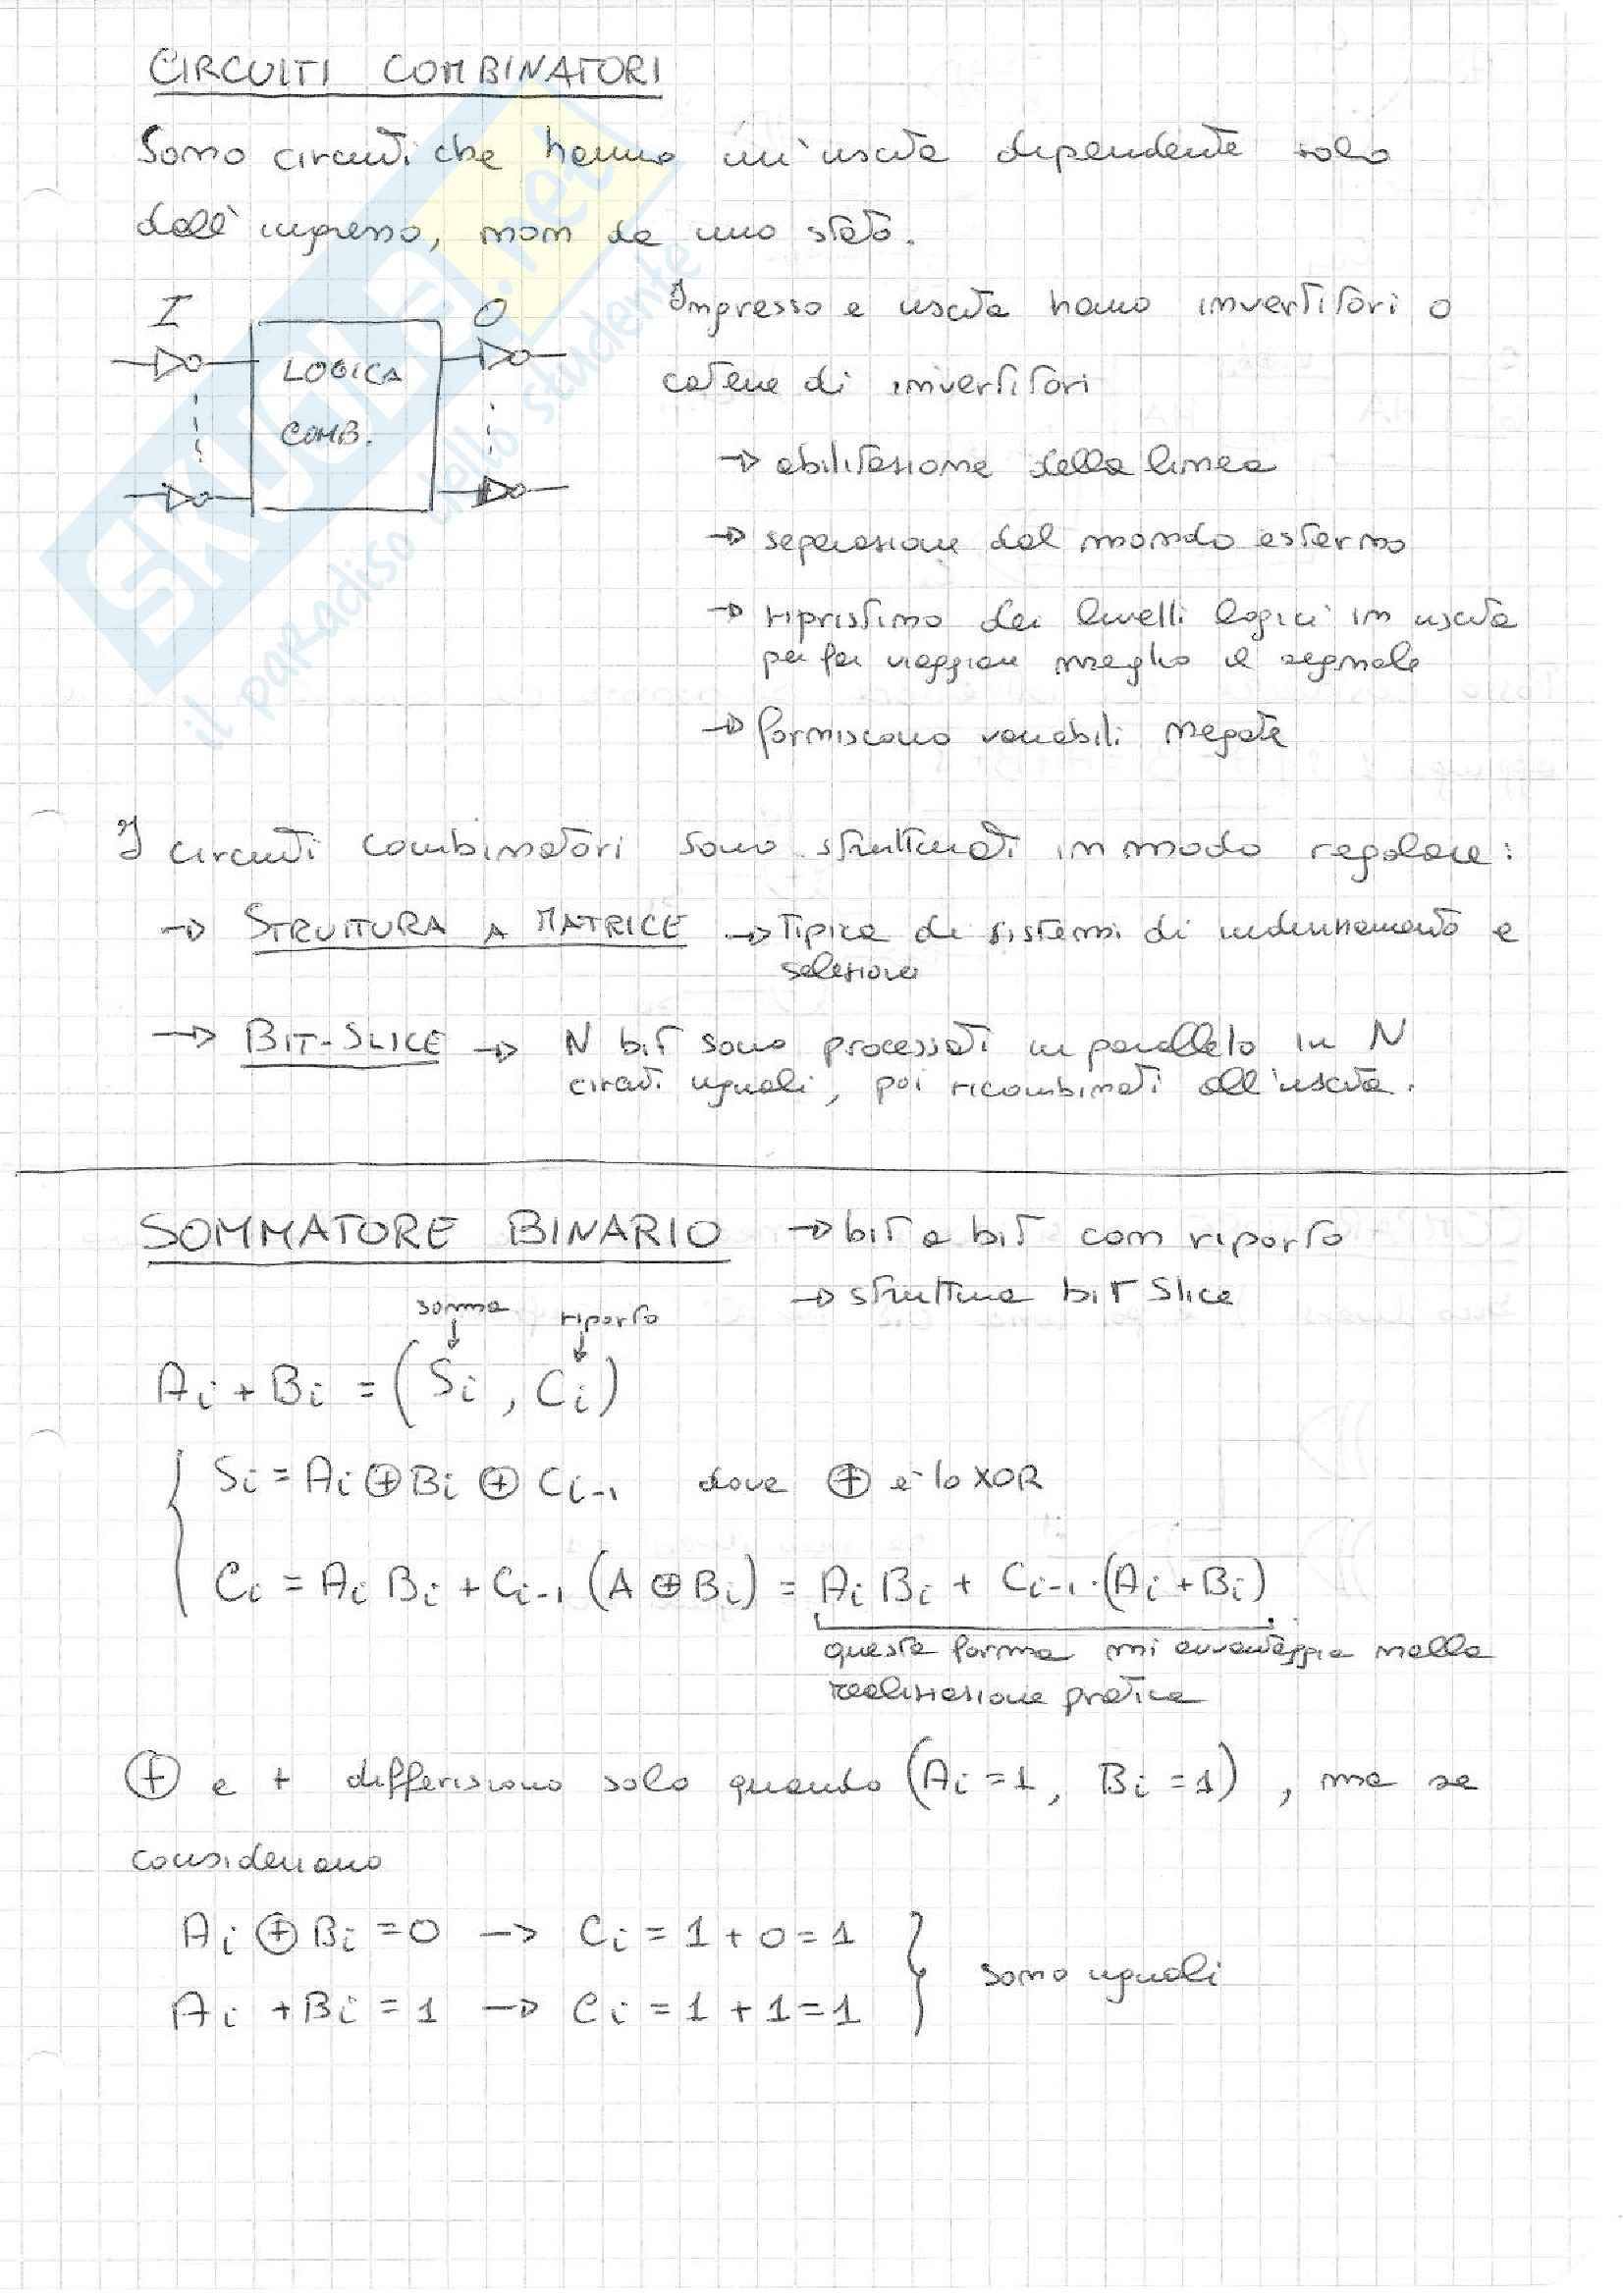 CIRCUITI COMBINATORI
Sono circuiti che hanno un'uscita dipendente solo
dall'ingresso, non da uno stato.
I
O
LOGICA
COMB.
Ingresso e uscita hanno invertitori o
catene di invertitori
→ abilitazione della linea
→ separazione dal mondo esterno
→ ripristino dei livelli logici in uscita
per far viaggiare meglio il segnale
→ forniscono variabili negate
I circuiti combinatori sono strutturati in modo regolare:
→ STRUTTURA A MATRICE → Tipica di sistemi di indirizzamento e
selezione
→ BIT-SLICE → N bit sono processati in parallelo in N
circuiti uguali, poi ricombinati all'uscita.
SOMMATORE BINARIO → bit a bit con riporto
→ struttura bit slice
somma riporto
Ai + Bi = (Si, Ci)
Si = Ai ⊕ Bi ⊕ Ci-1 dove ⊕ è lo XOR
Ci = Ai Bi + Ci-1 (A ⊕ Bi) = Ai Bi + Ci-1 · (Ai + Bi)
questa forma mi avvantaggia nella
realizzazione pratica
⊕ e + differiscono solo quando (Ai = 1, Bi = 1), ma se
consideriamo
Ai ⊕ Bi = 0 → Ci = 1 + 0 = 1
Ai + Bi = 1 → Ci = 1 + 1 = 1
sono uguali
SKUOLA.net
il paradiso dello studente